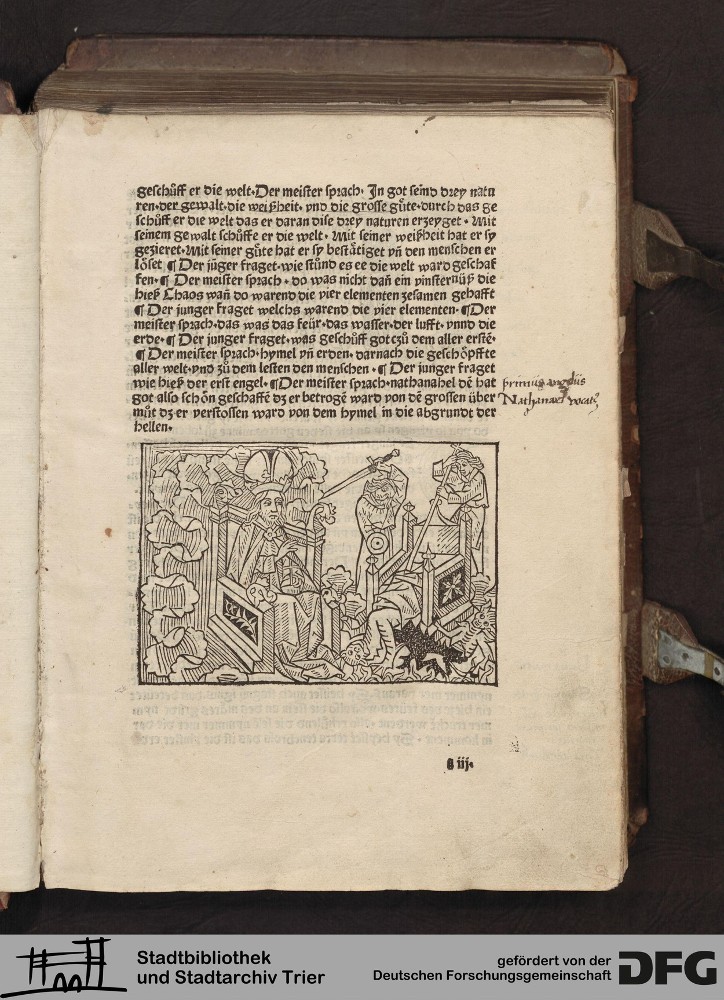 geschůff er die welt·Der meister sprach· In got seind drey natu
ren·der gewalt·die weißheit· vnd die grosse gůte·durch das ge
schůff er die welt das er daran dise drey naturen erzeyget · Mit
seinem gewalt schůffe er die welt · Mit seiner weißheit hat er sy
gezieret·Mit seiner gůte hat er sy bestätiget vn̄ den menschen er
löset ¶ Der jünger fraget·wie stůnd es ee die welt ward geschaf
fen·¶ Der meister sprach · do was nicht dan̄ ein vinsternüß die
hieß Chaos wan̄ do warend die vier elementen zesamen gehafft
¶ Der junger fraget welchs warend die vier elementen·¶Der
meister sprach·das was das feür·das wasser·der lufft·vnnd die
erde·¶ Der junger fraget·was geschůff got zů dem aller erstē·
¶ Der meister sprach·hymel vn̄ erden·darnach die geschöpffte
aller welt·vnd zů dem lesten den menschen·¶ Der junger fraget
wie hieß der erst engel·¶Der meister sprach·nathanahel dē hat
got also schön geschaffē dz er betrogē ward von dē grossen über
můt dz er verstossen ward von dem hymel in die abgrundt der
hellen·
primus angelus
Nathanael vocatꝰ
g iij·
Stadtbibliothek
und Stadtarchiv Trier
gefördert von der
Deutschen Forschungsgemeinschaft
DFG